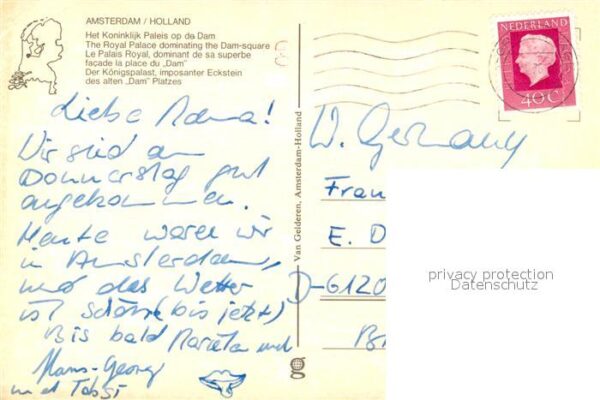 AMSTERDAM / HOLLAND
Het Koninklijk Paleis op de Dam
The Royal Palace dominating the Dam-square
Le Palais Royal, dominant de sa superbe
façade la place du „Dam"
Der Königspalast, imposanter Eckstein
des alten „Dam" Platzes
NEDERLAND
40 C
Liebe Mama!
Wir sind am
Donnerstag gut
angekommen.
Heute waren wir
in Amsterdam,
und das Wetter
ist schön (bis jetzt)
Bis bald und
Hans-Georg
und
Van Gelderen, Amsterdam-Holland
W. Germany
Frau
E. D
D-6120
privacy protection
Datenschutz